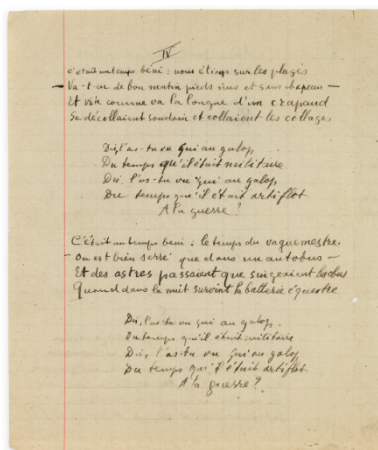 IV
C'était un temps béni : nous étions sur les plages
— Va-t-en de bon matin pieds nus et sans chapeau —
Et vite comme va la langue d'un crapaud
Se décollaient soudain et collaient les collages
Dis, l'as-tu vu Gui au galop
Du temps qu'il était militaire
Dis, l'as-tu vu Gui au galop
Du temps qu'il était artiflot
A la guerre ?
C'était un temps béni : le temps du vaguemestre
— On est bien serré que dans un autobus —
Et des astres passaient que singeaient les obus
Quand dans la nuit survint la batterie équestre
Dis, l'as-tu vu Gui au galop
Du temps qu'il était militaire
Dis, l'as-tu vu Gui au galop
Du temps qu'il était artiflot
A la guerre ?